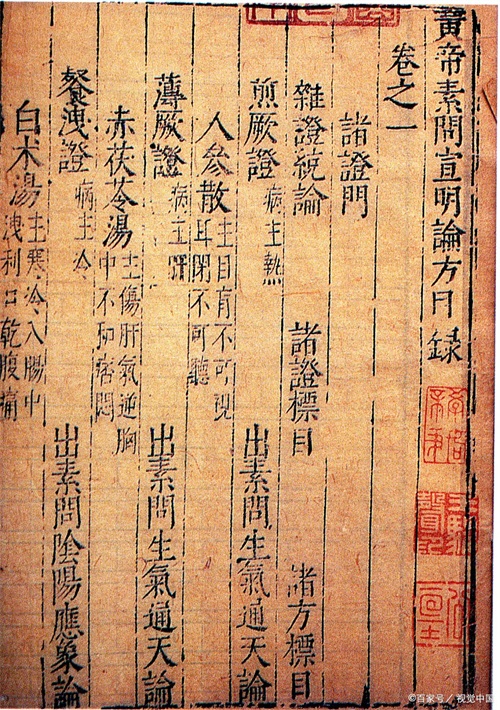 黃帝素問宣明論方目錄
卷之一
諸證門
雜證總論 諸證標目 諸方標目
煎厥證 病主熱 出素問生氣通天論
人參散 主目盲不可視 耳閉不可聽
薄厥證 病主肝 出素問生氣通天論
赤茯苓湯 主傷肝氣逆胸 中不和痞悶
飧洩證 病主冷 出素問陰陽應象論
白朮湯 主寒冷入腸中 洩利口乾腹痛
©百家号/視觉中国